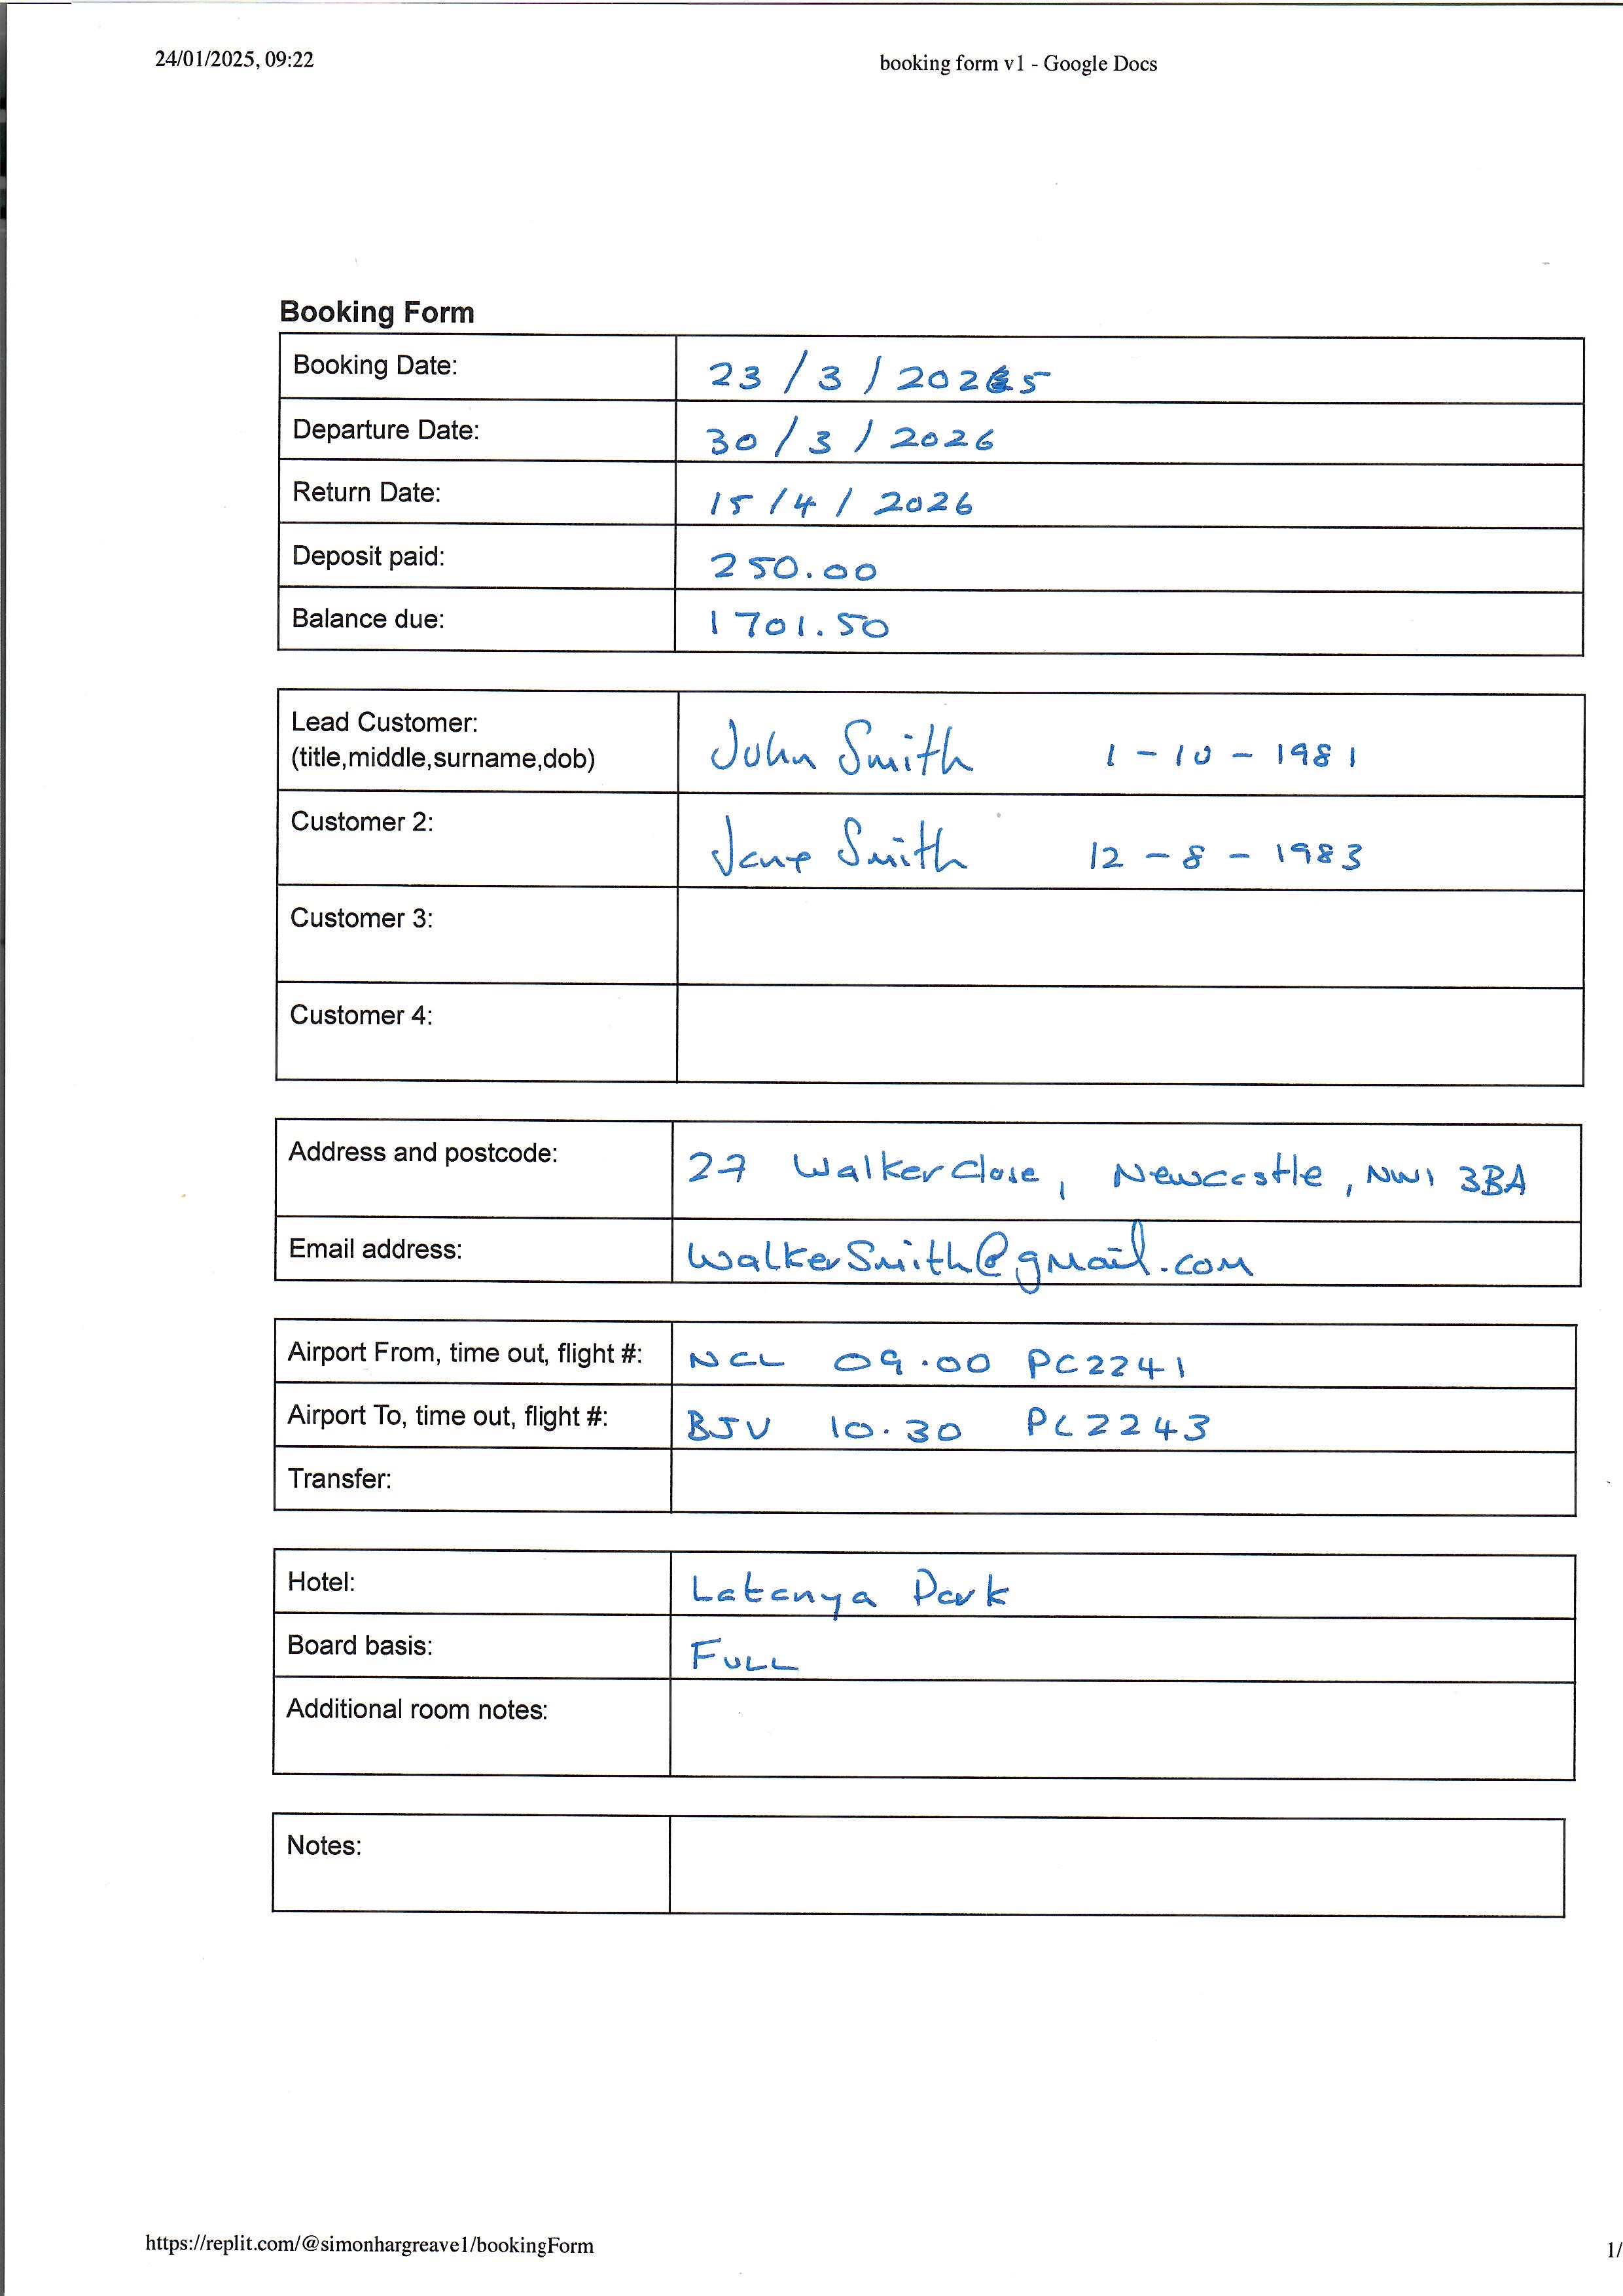 24/01/2025, 09:22 booking form v1 - Google Docs
Booking Form
Booking Date: 23/3/2025
Departure Date: 30/3/2026
Return Date: 15/4/2026
Deposit paid: 250.00
Balance due: 1701.50
Lead Customer:
(title,middle,surname,dob) John Smith 1-10-1981
Customer 2: Jane Smith 12-8-1983
Customer 3:
Customer 4:
Address and postcode: 27 Walker Close, Newcastle, NW1 3BA
Email address: WalkerSmith@gmail.com
Airport From, time out, flight #: NCL 09.00 PC2241
Airport To, time out, flight #: BJV 10.30 PC2243
Transfer:
Hotel: Latanya Park
Board basis: FULL
Additional room notes:
Notes:
https://replit.com/@simonhargreave1/bookingForm 1/